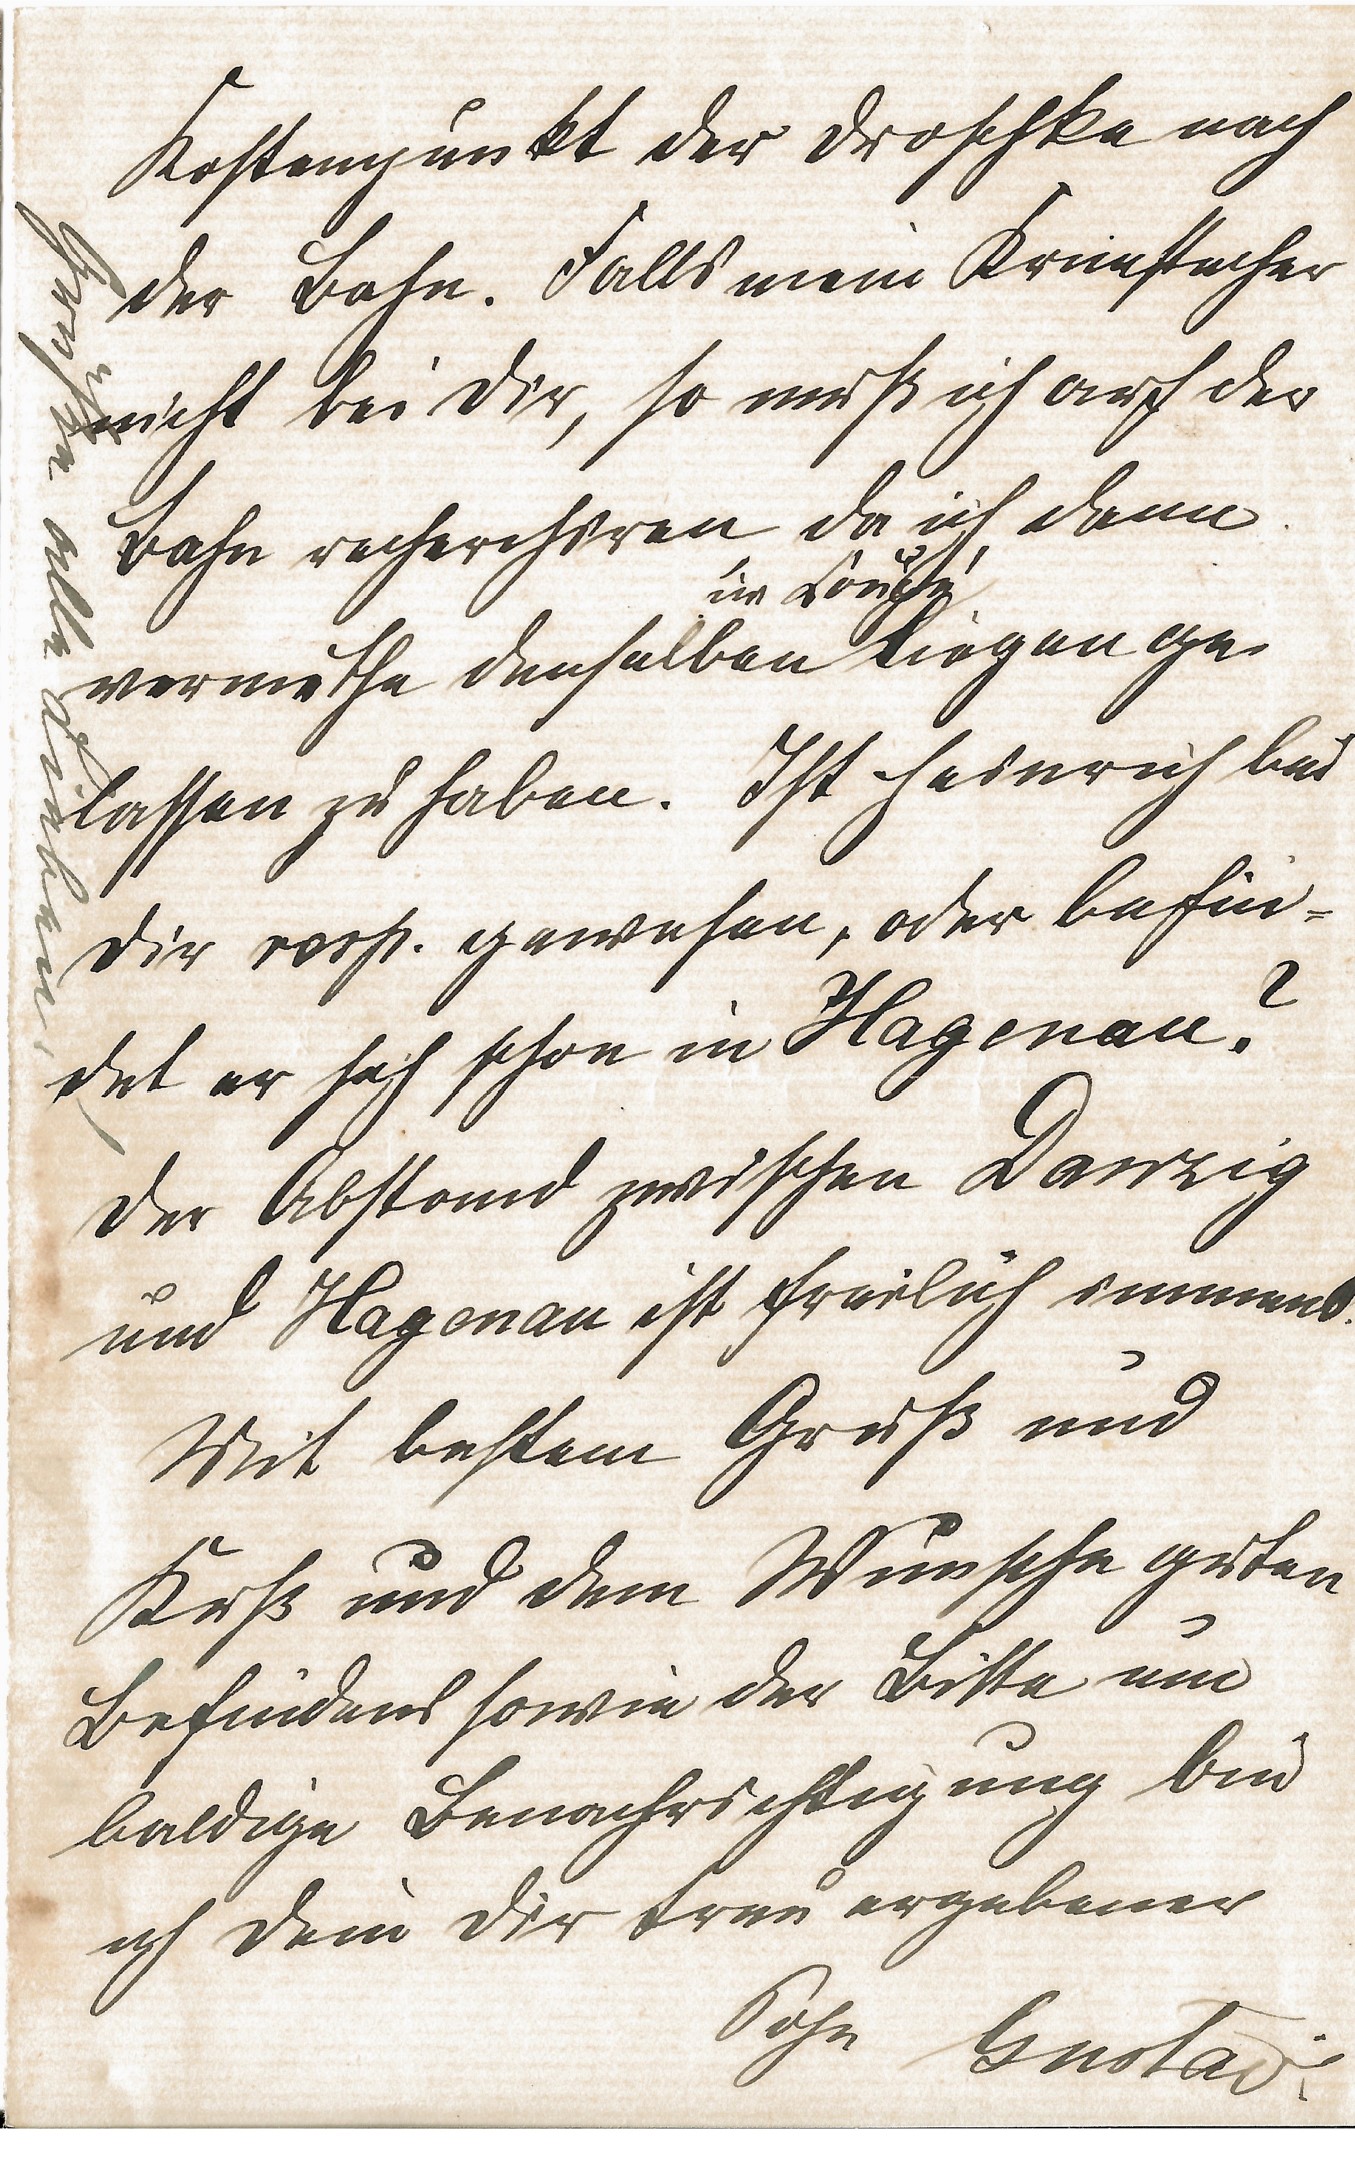 Kostenpunkt der Droschke nach
der Bahn. Falls mein Krimstecher
nicht bei Dir, so muß ich auf der
Bahn recherchiren da ich dann
im Coupé
vermuthe denselben liegen ge-
lassen zu haben. Ist Heinrich bei
Dir resp. gewesen, oder befin-
det er sich schon in Hagenau?
Der Abstand zwischen Danzig
und Hagenau ist freilich immens.
Mit bestem Gruß und
Kuß und dem Wunsche guten
Befindens sowie der Bitte um
baldige Benachrichtigung bin
ich Dein Dir treu ergebener
Sohn Gustav.
Grüße alle